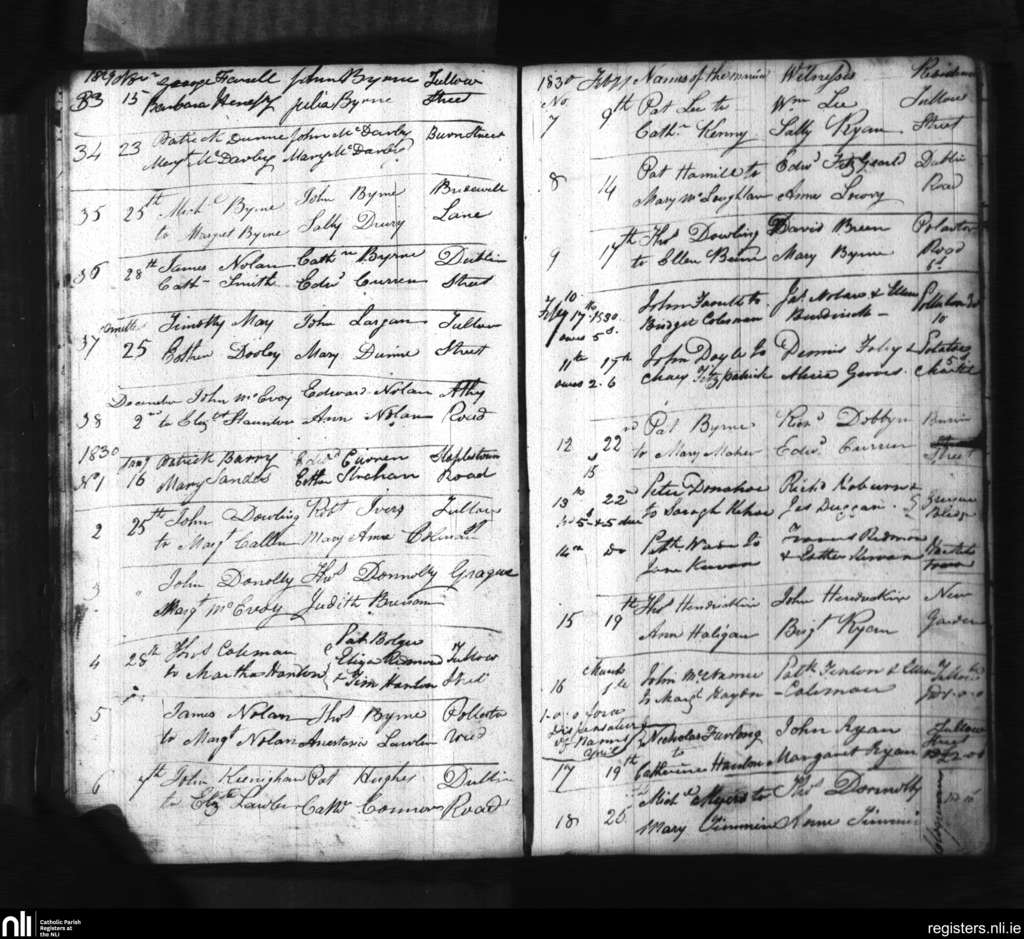 1829 Novr George Farrell John Byrne Tullow
33 15 Barbara Henesy Julia Byrne Street
34 23 Patrick Dunne John McDarby Burn Street
Margt McDarby Mary McDarby
35 25th Michl Byrne John Byrne Bridewell
to Margret Byrne Sally Drury Lane
36 28th James Nolan Cathne Byrne Dublin
Cathn Smith Edwd Curren Street
37 Timothy May John Largan Tullow
25 Esther Dooley Mary Dunne Street
December John McEvoy Edward Nolan Athy
38 2nd to Elizth Staunton Ann Nolan Road
1830 Jany Patrick Barry Edwd Curren Staplestown
No 1 16 Mary Sandes Esther Strehan Road
2 25th John Dowling Robt Ivers Tullow
to Margt Callen Mary Anne Colman St
3 " John Donolly Thos Donnolly Grague
Margt McEvoy Judith
4 28th Thos Coleman Pat Bolger
to Martha Hanlon Eliza Redmond Tullow
& Tim Hanlon Street
5 James Nolan Thos Byrne Pollerton
to Margt Nolan Anastasia Lawlor Road
6 7th John Keenighan Pat Hughes Dublin
to Elizth Lawler Cathn Connor Road
1830 Feby Names of the married Witnesses Residence
No
7 9th Pat Lee to Wm Lee Tullow
Cathn Kenny Sally Ryan Street
8 14 Pat Hamill to Edwd FitzGerald Dublin
Mary McLoughlan Anne Lowry Road
9 17th Thos Dowling David Breen Polerton
to Ellen Breen Mary Byrne Road
10
Feby 17th 1830 John to Jas Nolan & Ellen
owes 5s. Bridget Coleman
11th 17th John Doyle to Dennis Foley & Potatoe
owes 2-6 Mary Fitzpatrick Alicia Market
12 22nd Pat Byrne Richd Dobbyn Burrin
to Mary Maher Edwd Curren Street
15
13th 22 Peter Donahoe Richd & Grague
to Saragh Jas Duggan
14th do Patk Wade to Francis Redmond
Jane Kirwan & Esther Kirwan
15 19th Thos Hendrickin John Hendrickin New
Ann Haligan Bridgt Ryan Garden
March
16 1st John McNamee Patk Fenlon & Ellen Tullow
to Margt Coleman
1-0-0 for a
dispensation
of Banns Nicholas Furlong John Ryan Tullow
April to
17 19th Catherine Hanlon Margaret Ryan
18 25 Michl Myers to Thos Donnolly
Mary Timmin Anne Timmin
nli
Catholic Parish
Registers at
the NLI
registers.nli.ie